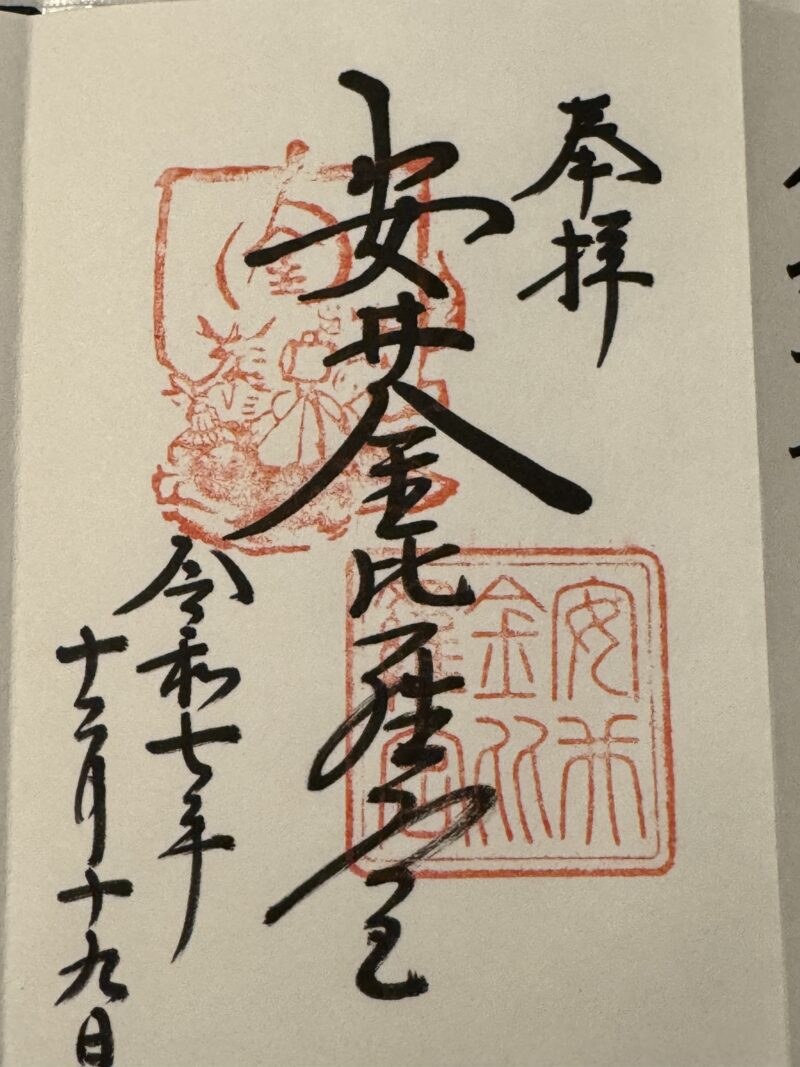 奉拝
安井金比羅宮
令和七年
十二月十九日
安井
金比
羅宮
金